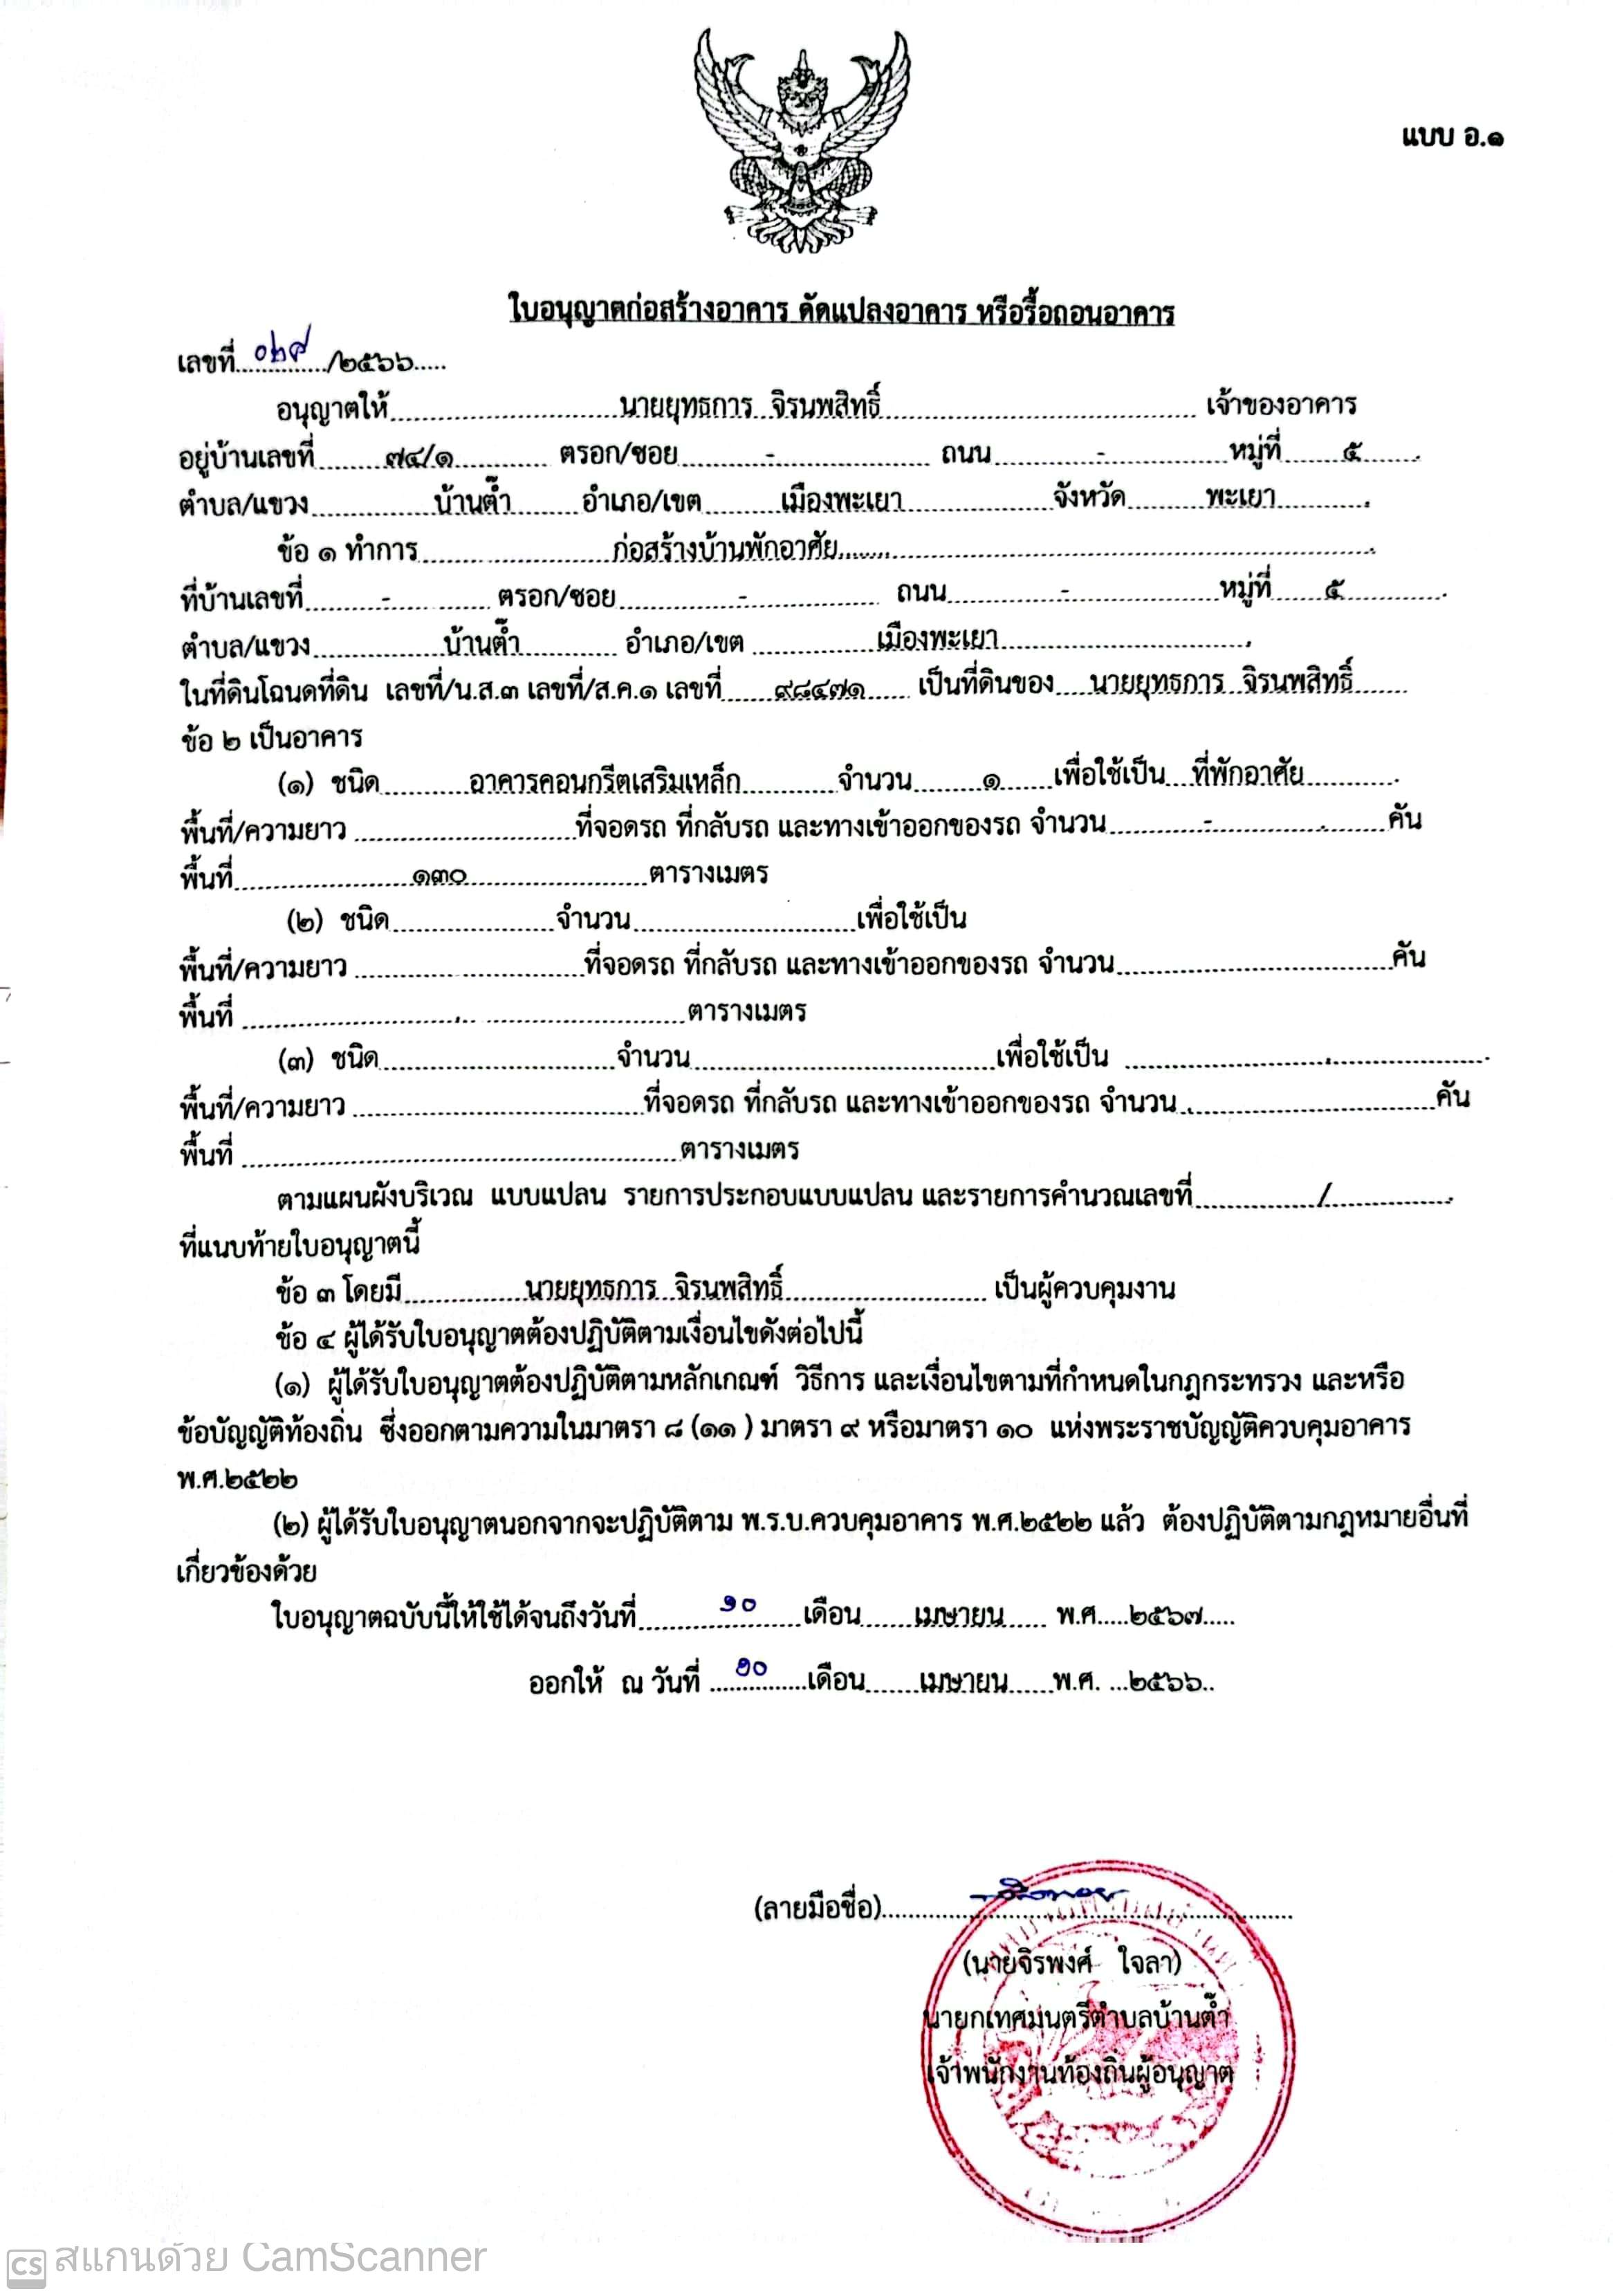 แบบ อ.๑
ใบอนุญาตก่อสร้างอาคาร ดัดแปลงอาคาร หรือรื้อถอนอาคาร
เลขที่ ๐๒๙ /๒๕๖๖.....
อนุญาตให้ นายยุทธการ จิรนพสิทธิ์ เจ้าของอาคาร
อยู่บ้านเลขที่ ๗๔/๑ ตรอก/ซอย - ถนน - หมู่ที่ ๕
ตำบล/แขวง บ้านต๊ำ อำเภอ/เขต เมืองพะเยา จังหวัด พะเยา
ข้อ ๑ ทำการ ก่อสร้างบ้านพักอาศัย
ที่บ้านเลขที่ - ตรอก/ซอย - ถนน - หมู่ที่ ๕
ตำบล/แขวง บ้านต๊ำ อำเภอ/เขต เมืองพะเยา
ในที่ดินโฉนดที่ดิน เลขที่/น.ส.๓ เลขที่/ส.ค.๑ เลขที่ ๙๘๔๗๑ เป็นที่ดินของ นายยุทธการ จิรนพสิทธิ์
ข้อ ๒ เป็นอาคาร
(๑) ชนิด อาคารคอนกรีตเสริมเหล็ก จำนวน ๑ เพื่อใช้เป็น ที่พักอาศัย
พื้นที่/ความยาว ที่จอดรถ ที่กลับรถ และทางเข้าออกของรถ จำนวน - คัน
พื้นที่ ๑๓๐ ตารางเมตร
(๒) ชนิด จำนวน เพื่อใช้เป็น
พื้นที่/ความยาว ที่จอดรถ ที่กลับรถ และทางเข้าออกของรถ จำนวน คัน
พื้นที่ ตารางเมตร
(๓) ชนิด จำนวน เพื่อใช้เป็น
พื้นที่/ความยาว ที่จอดรถ ที่กลับรถ และทางเข้าออกของรถ จำนวน คัน
พื้นที่ ตารางเมตร
ตามแผนผังบริเวณ แบบแปลน รายการประกอบแบบแปลน และรายการคำนวณเลขที่ /
ที่แนบท้ายใบอนุญาตนี้
ข้อ ๓ โดยมี นายยุทธการ จิรนพสิทธิ์ เป็นผู้ควบคุมงาน
ข้อ ๔ ผู้ได้รับใบอนุญาตต้องปฏิบัติตามเงื่อนไขดังต่อไปนี้
(๑) ผู้ได้รับใบอนุญาตต้องปฏิบัติตามหลักเกณฑ์ วิธีการ และเงื่อนไขตามที่กำหนดในกฎกระทรวง และหรือ
ข้อบัญญัติท้องถิ่น ซึ่งออกตามความในมาตรา ๘ (๑๑ ) มาตรา ๙ หรือมาตรา ๑๐ แห่งพระราชบัญญัติควบคุมอาคาร
พ.ศ.๒๕๒๒
(๒) ผู้ได้รับใบอนุญาตนอกจากจะปฏิบัติตาม พ.ร.บ.ควบคุมอาคาร พ.ศ.๒๕๒๒ แล้ว ต้องปฏิบัติตามกฎหมายอื่นที่
เกี่ยวข้องด้วย
ใบอนุญาตฉบับนี้ให้ใช้ได้จนถึงวันที่ ๑๐ เดือน เมษายน พ.ศ.....๒๕๖๗.....
ออกให้ ณ วันที่ ๑๐ เดือน เมษายน พ.ศ. ...๒๕๖๖..
(ลายมือชื่อ)
(นายจิรพงศ์ ใจลา)
นายกเทศมนตรีตำบลบ้านต๊ำ
เจ้าพนักงานท้องถิ่นผู้อนุญาต
CS สแกนด้วย CamScanner